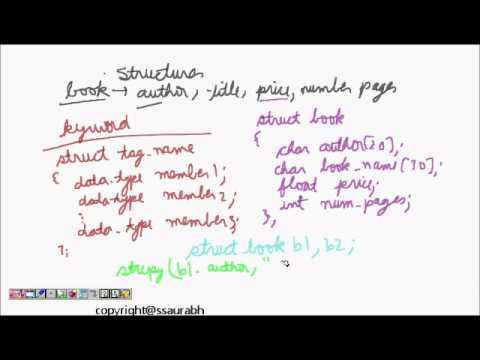 structures
book → author, title, price, number pages
keyword
struct tag_name
{ data-type member1;
data-type member2;
⋮
data-type member3;
};
struct book
{
char author[20];
char book_name[30];
float price;
int num_pages;
};
struct book b1, b2;
strcpy(b1.author, "
copyright@ssaurabh